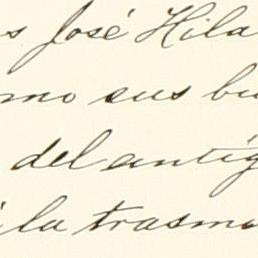 s José Hila
mo sus bu
del antig
la trasm